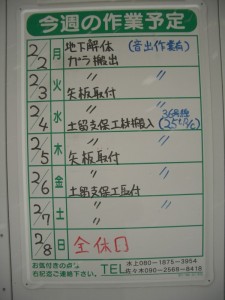 今週の作業予定
2/2 月 地下解体 (音出作業有)
ガラ搬出
2/3 火 〃 〃
矢板取付
2/4 水 〃 36号線
土留支保工材搬入 (25t R/C)
2/5 木 〃 〃
矢板取付
2/6 金 〃 〃
土留支保工取付
2/7 土 〃 〃
〃
2/8 日 全休日
お気付きの点が
右記迄ご連絡下さい。
TEL
水上090-1875-3954
佐々木090-2568-8418